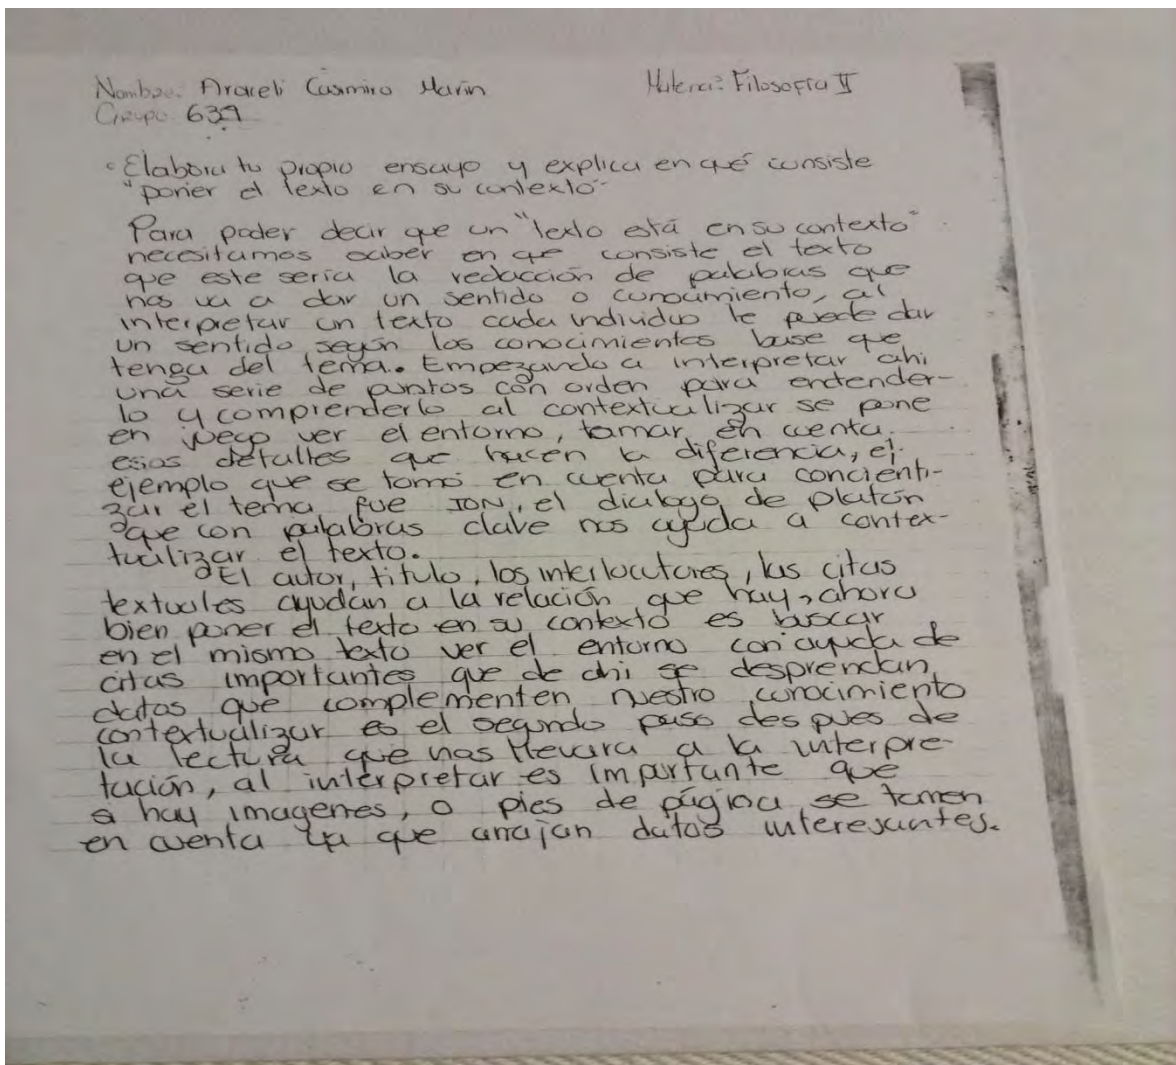 Nombre: Araceli Casimiro Marín Materia: Filosofía II
Grupo 639
• Elabora tu propio ensayo y explica en qué consiste
"poner el texto en su contexto"
Para poder decir que un "texto está en su contexto"
necesitamos saber en que consiste el texto
que este sería la redacción de palabras que
nos va a dar un sentido o conocimiento, al
interpretar un texto cada individuo le puede dar
un sentido según los conocimientos base que
tenga del tema. Empezando a interpretar ahi
una serie de puntos con orden para entender-
lo y comprenderlo al contextualizar se pone
en juego ver el entorno, tomar en cuenta
esos detalles que hacen la diferencia, el
ejemplo que se tomó en cuenta para concienti-
zar el tema fue ION, el dialogo de platón
que con palabras clave nos ayuda a contex-
tualizar el texto.
El autor, titulo, los interlocutores, las citas
textuales ayudan a la relación que hay, ahora
bien poner el texto en su contexto es buscar
en el mismo texto ver el entorno con ayuda de
citas importantes que de ahi se desprendan
datos que complementen nuestro conocimiento
contextualizar es el segundo paso despues de
la lectura que nos llevara a la interpre-
tación, al interpretar es importante que
si hay imagenes, o pies de página se tomen
en cuenta ya que arrojan datos interesantes.